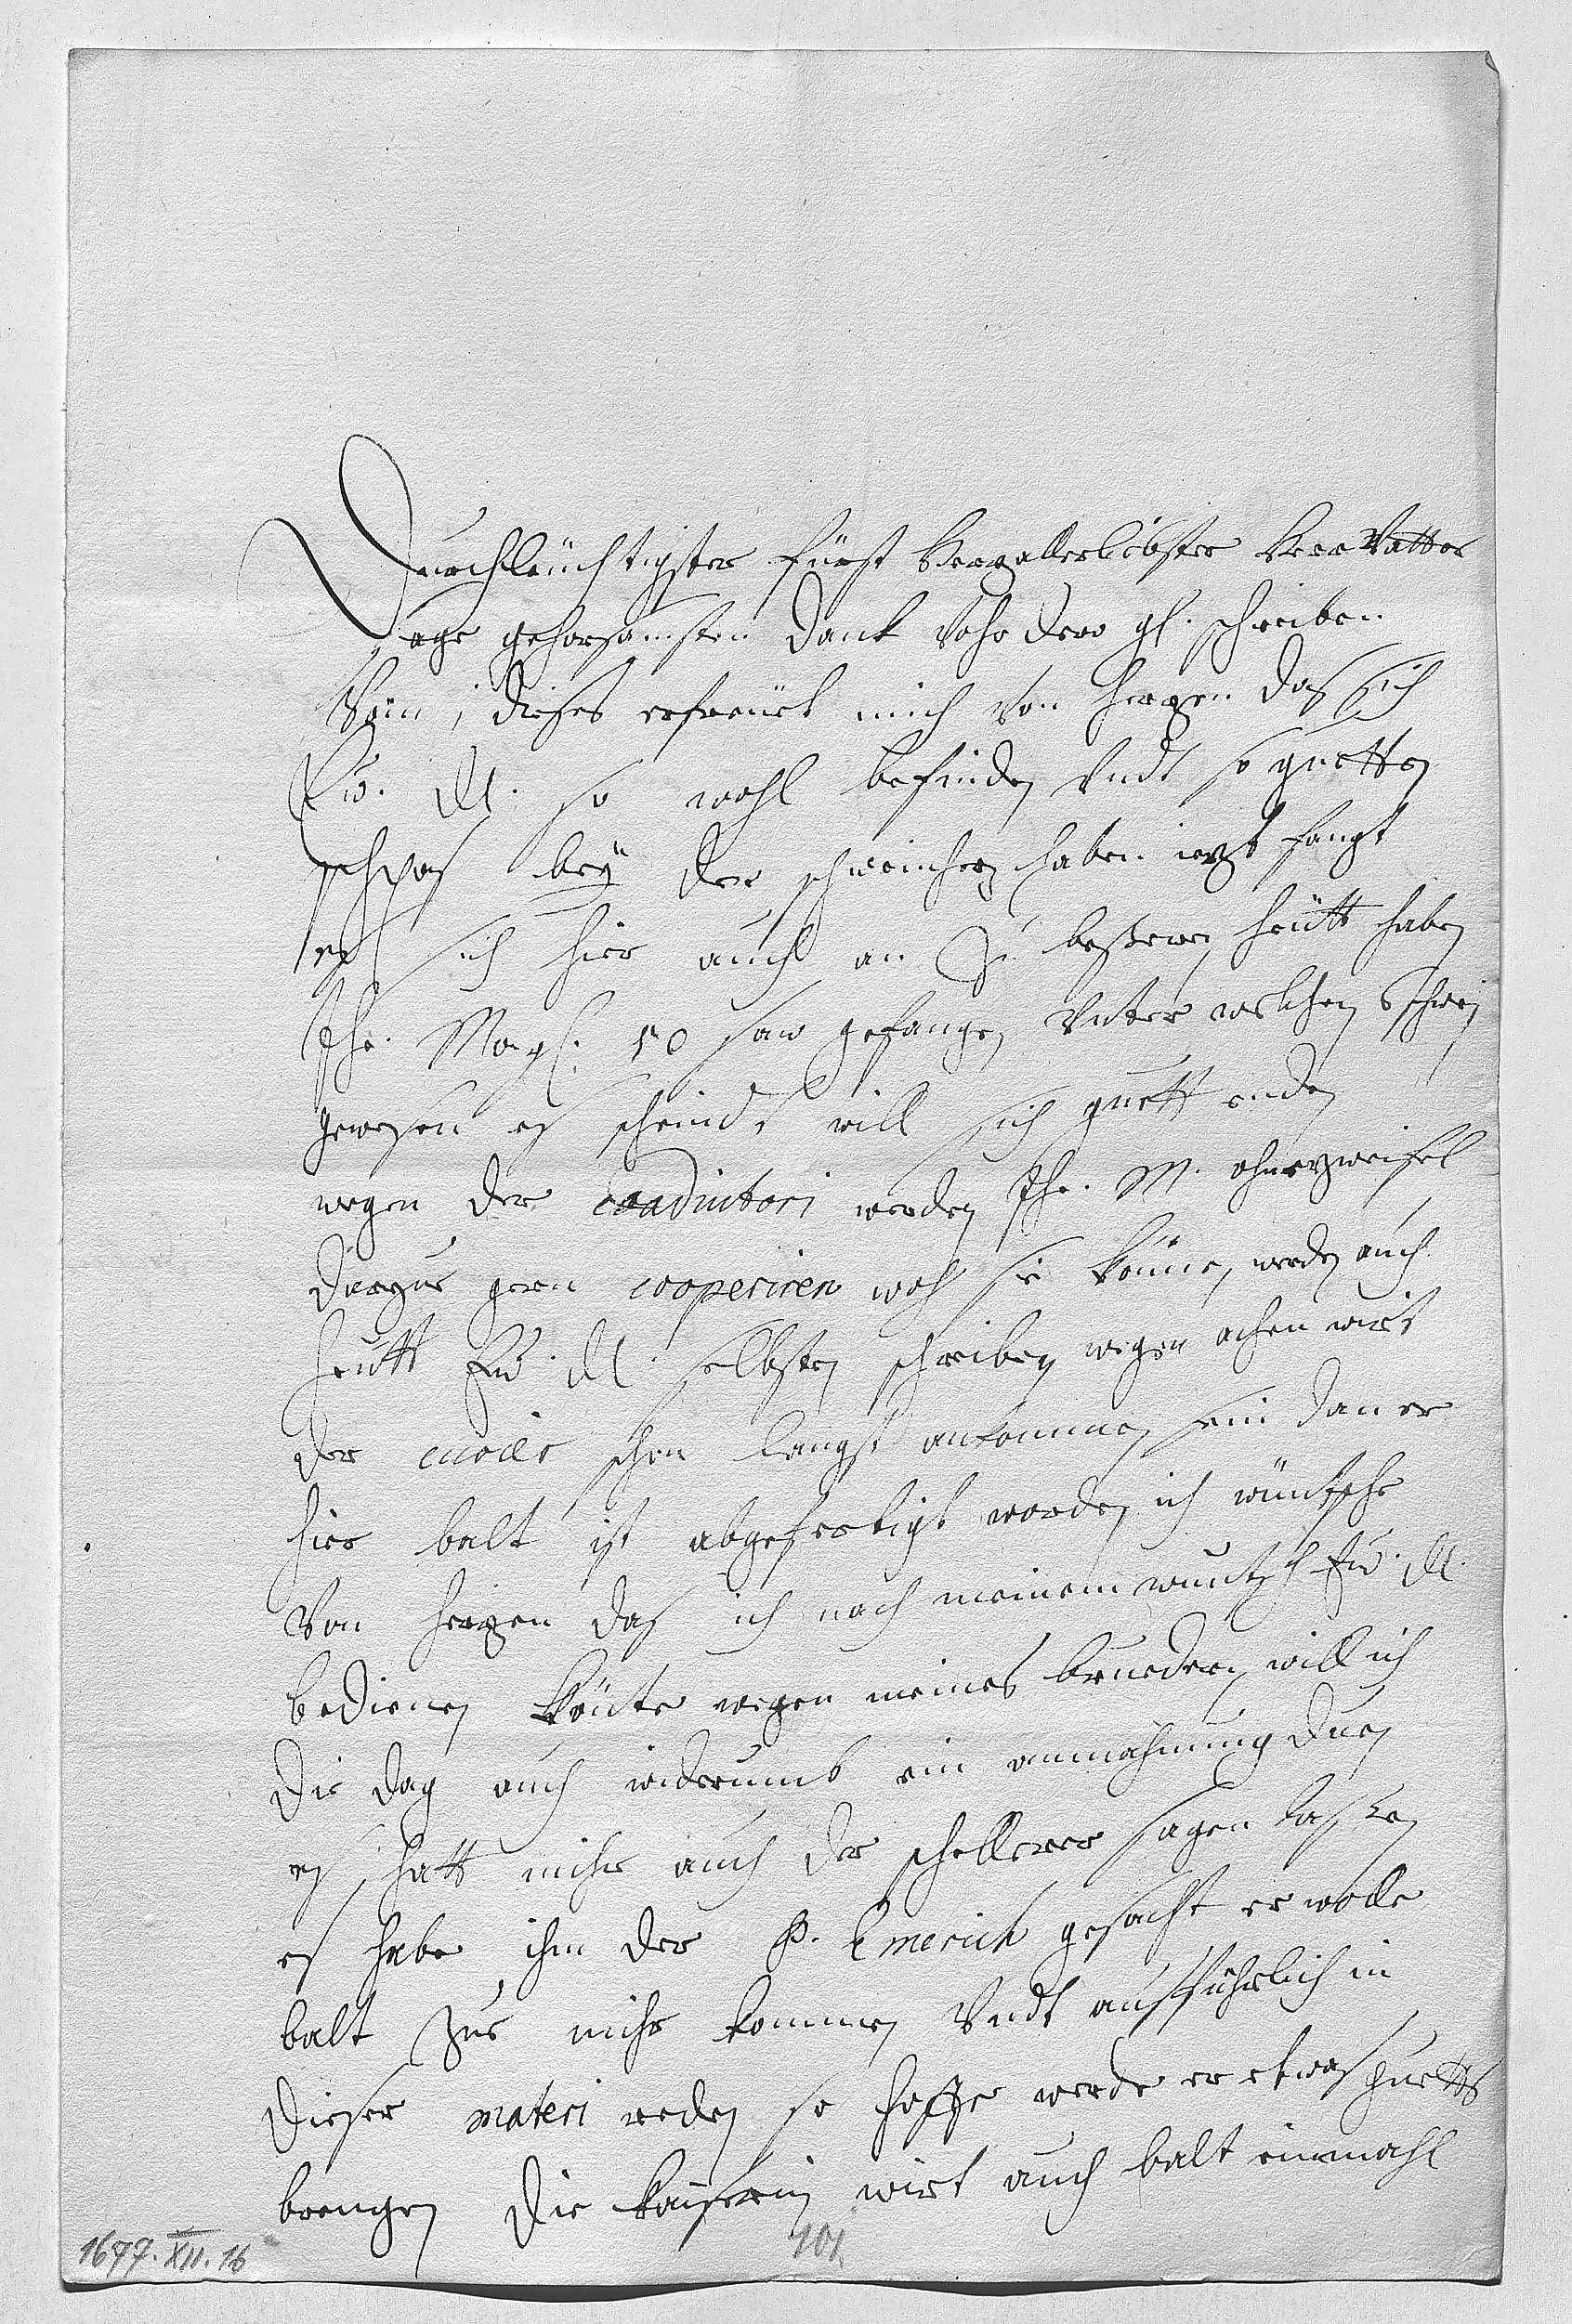 Durchleüchtigster Fürst Herzallerlibster Herr Vatter
sage gehorsamsten Danck Vohr dero gl. schreiben
Vom, dieses erfreüet mich von herzen das sich
Ew. Dl. so wohl befinden Vndt so guetten
spas beÿ der schweinhez haben iezt fangt
es sich hier auch an zu beßeren heütt haben
Ihr. Mayl. 50 saw gefangen Vnter welchen 6 schwein
gewesen es scheind will sich guett enden
wegen der coadiutori werden Ihr. M. ohnezweifel
darzue gern cooperiren woh sie könne, werden auch
heutt Ew. Dl. selbsten schreiben wegen achen wirt
der schon langst ankommen sein dan er
hier balt ist abgefertigt worden ich wüntsche
von herzen das ich nach meinem wuntsch Ew. Dl.
bedienen könte wegen meines brueders will ich
die dag auch widerumb ein anmahnung duen
es hatt mihr auch der schellerer sagen lassen
es habe ihm der P. Emerich gesacht er wolle
balt zue mihr kommen Vndt ausführlich in
dieser materi reden so hoffe werde er etwas guetts
brengen die Kaiserin wirt auch balt einmahl
101
1677. XII. 16